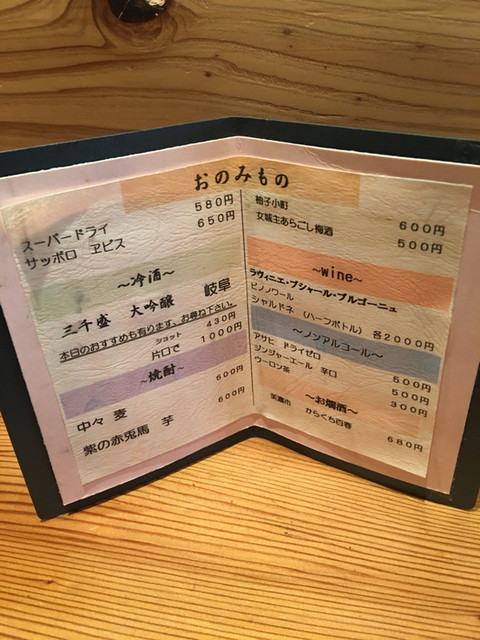 おのみもの
スーパードライ 580円
サッポロ ヱビス 650円
～冷酒～
三千盛 大吟醸 岐阜
本日のおすすめも有ります。お尋ね下さい。
ショット 430円
片口で 1000円
～焼酎～
中々 麦 500円
紫の赤兎馬 芋 600円
柚子小町 600円
女城主あらごし梅酒 500円
～wine～
ラヴィニエ・プシャール・ブルゴーニュ
ピノノワール
シャルドネ (ハーフボトル) 各2000円
～ノンアルコール～
アサヒ ドライゼロ 500円
ジンジャーエール 辛口 500円
ウーロン茶 300円
～お燗酒～
美濃市 からくち百春 680円